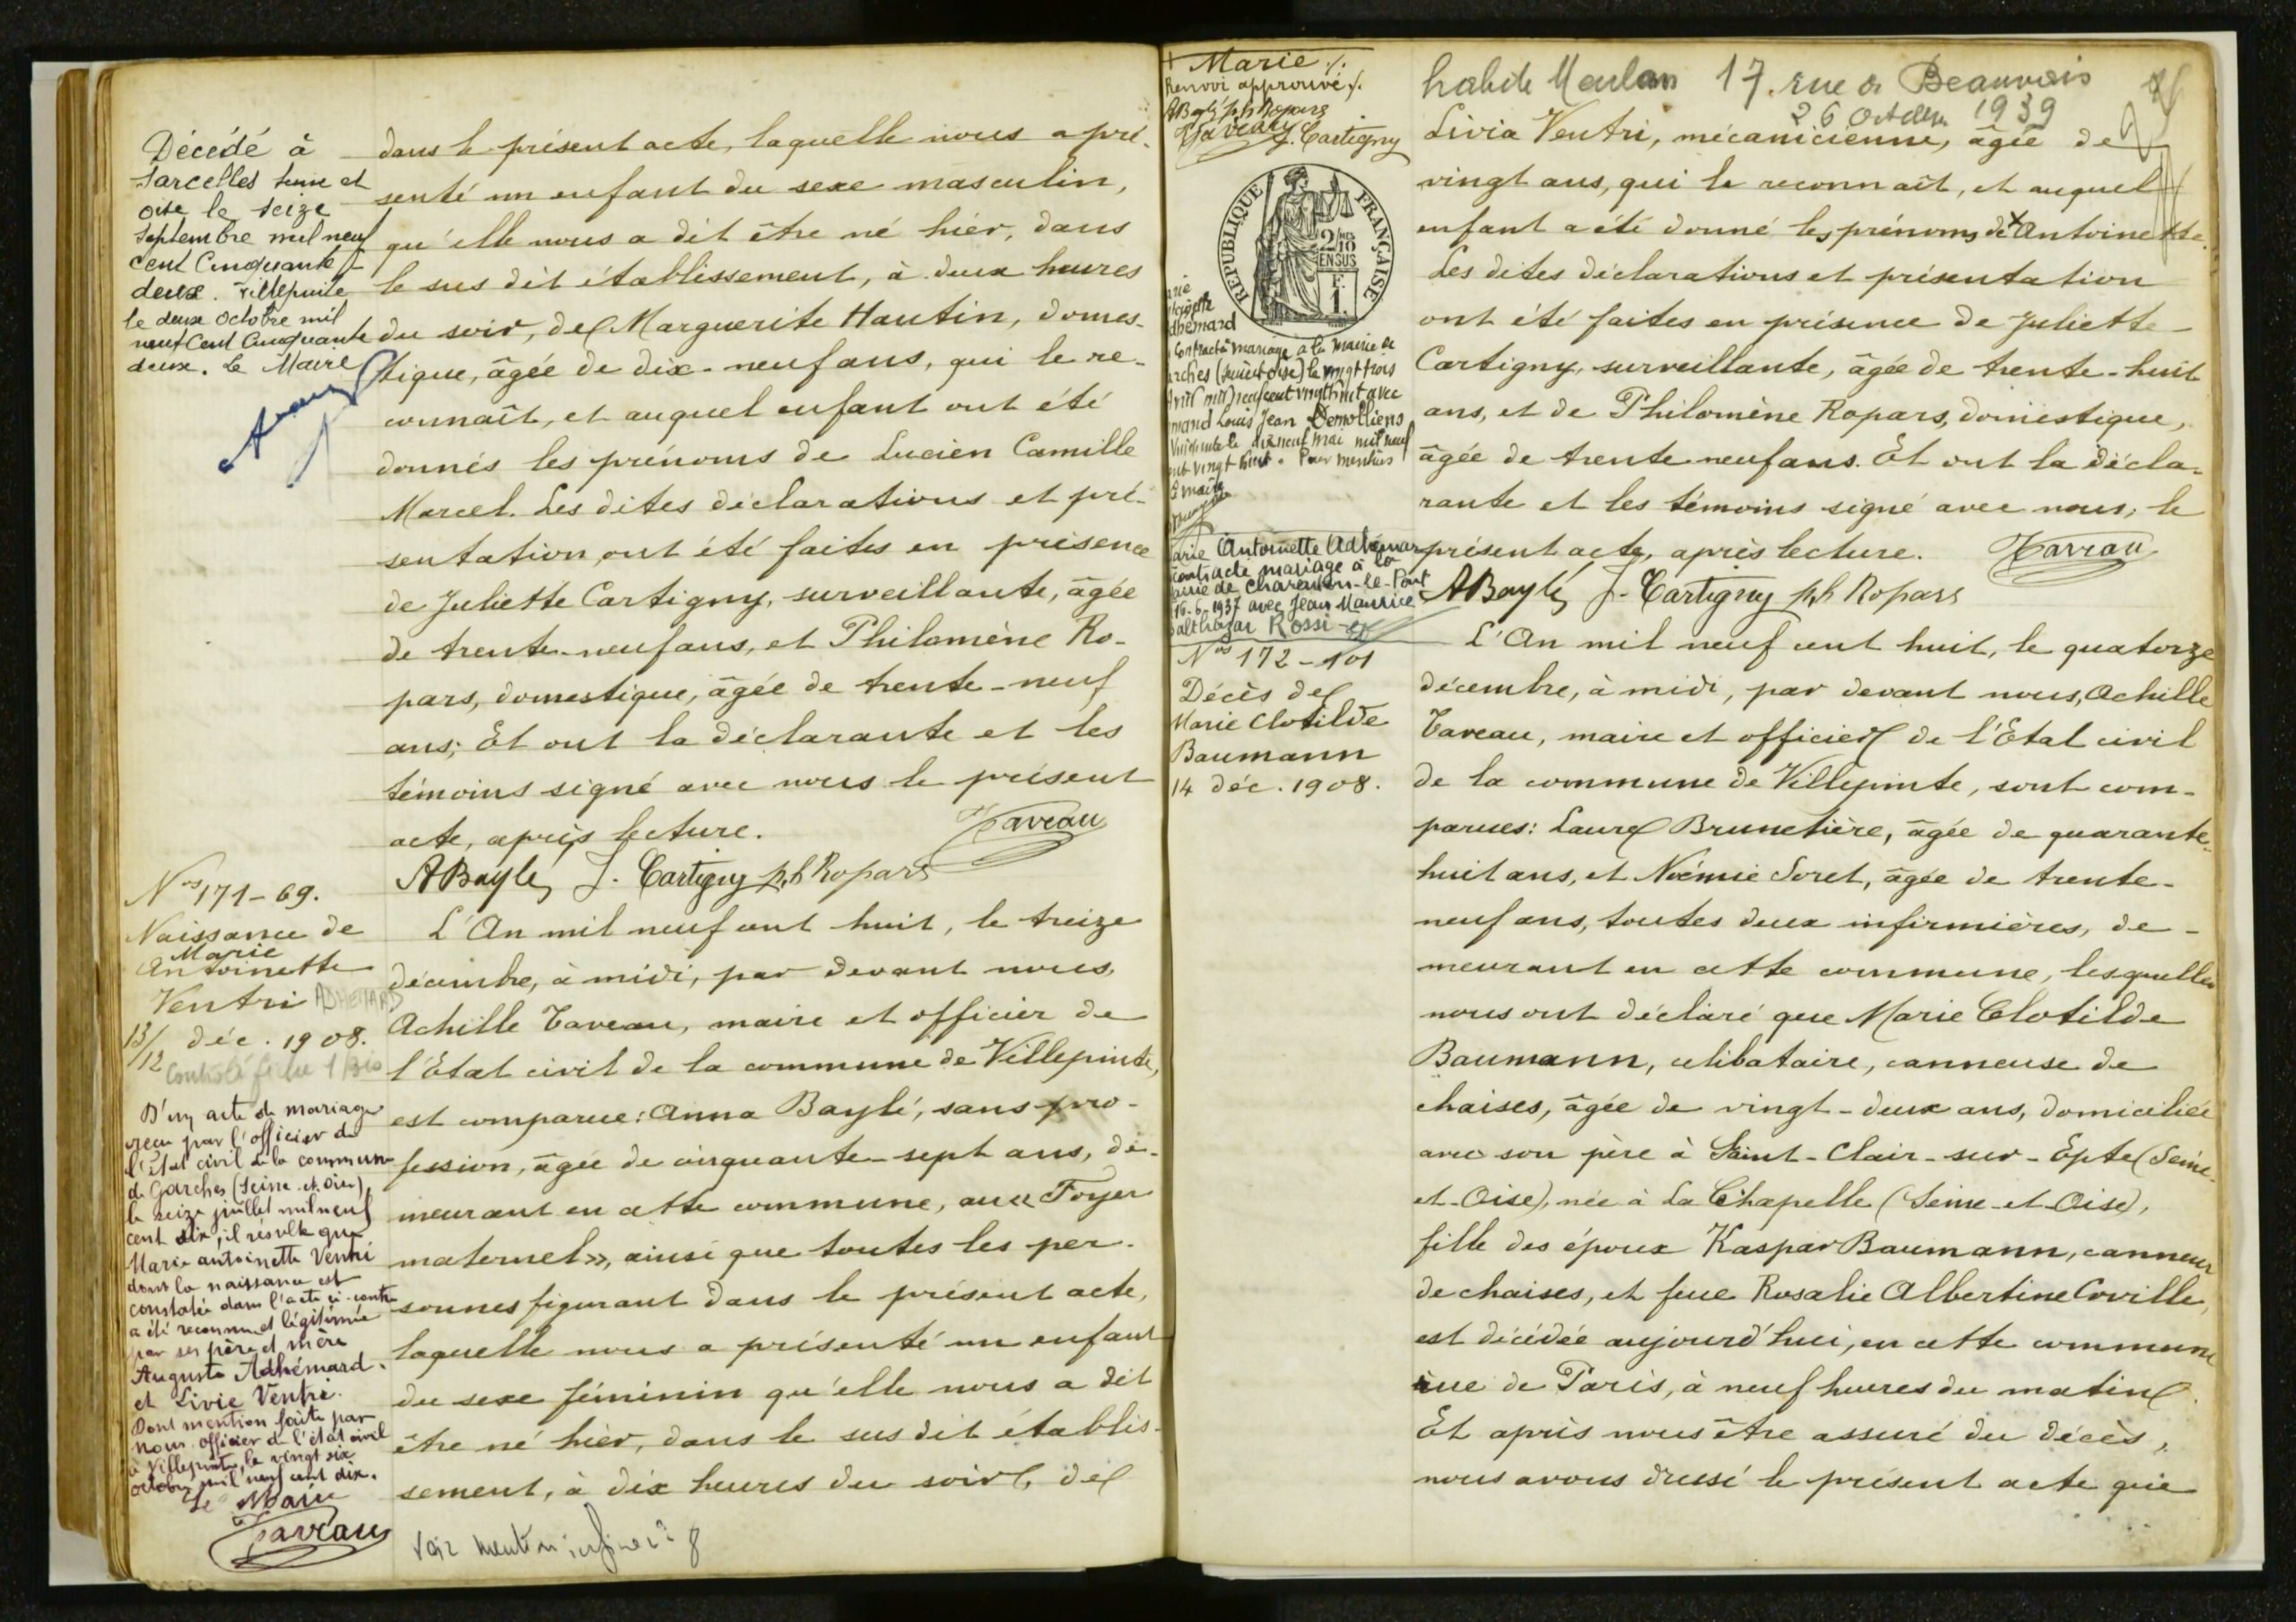 Décédé à
Sarcelles Seine et
Oise le seize
Septembre mil neuf
cent Cinquante
deux. Villepinte
le deux Octobre mil
neuf Cent Cinquante
deux. Le Maire
dans le présent acte, laquelle nous a pré-
senté un enfant du sexe masculin,
qu'elle nous a dit être né hier, dans
le sus dit établissement, à deux heures
du soir, de Marguerite Hautin, domes-
tique, âgée de dix-neuf ans, qui le re-
connaît, et auquel enfant ont été
donnés les prénoms de Lucien Camille
Marcel. Les dites déclarations et pré-
sentation ont été faites en présence
de Juliette Cartigny, surveillante, âgée
de trente-neuf ans, et Philomène Ro-
pars, domestique, âgée de trente-neuf
ans; Et ont la déclarante et les
témoins signé avec nous le présent
acte, après lecture. Taveau
ABaylé J. Cartigny ph Ropars
Nos 171-69.
Naissance de
Marie
Antoinette
Ventri ADHEMARD
13/12 déc. 1908.
Contrôlé fiche 1 bis
D'un acte de mariage
reçu par l'officier de
l'état civil de la commune
de Garches (Seine-et-Oise),
le seize juillet mil neuf
cent dix, il résulte que
Marie antoinette Ventri
dont la naissance est
constatée dans l'acte ci-contre
a été reconnue et légitimée
par ses père et mère
Auguste Adhémard.
et Livie Ventri.
Dont mention faite par
nous officier de l'état civil
à Villepinte, le vingt six
octobre mil neuf cent dix.
Le Maire
Taveau
L'An mil neuf cent huit, le treize
décembre, à midi, par devant nous,
Achille Taveau, maire et officier de
l'Etat civil de la commune de Villepinte,
est comparue: Anna Baylé, sans pro-
fession, âgée de cinquante-sept ans, de-
meurant en cette commune, au « Foyer
maternel », ainsi que toutes les per-
sonnes figurant dans le présent acte,
laquelle nous a présenté un enfant
du sexe féminin qu'elle nous a dit
être né hier, dans le sus dit établis-
sement, à dix heures du soir, de
Voir mention
+ Marie ./.
Renvoi approuvé ./.
ABaylé ph Ropars
Taveau J. Cartigny
REPUBLIQUE FRANÇAISE
2/10 EN SUS
F. 1.
Adhémard
Contracté mariage à la Mairie de
Garches (Seine et Oise) le vingt trois
Avril mil neuf cent vingt huit avec
Louis Jean Demolliens
le dix neuf mai mil neuf
cent vingt huit. Pour mention
Le Maire
Marie Antoinette Adhémar
contracté mariage à la
mairie de Charenton-le-Pont
16-6-1937 avec Jean Maurice
Balthazar Rossi
habite Meulan 17. rue de Beauvais
26 Octobre 1939
Livia Ventri, mécanicienne, âgée de
vingt ans, qui le reconnaît, et auquel
enfant a été donné les prénoms de + Antoinette.
Les dites déclarations et présentation
ont été faites en présence de Juliette
Cartigny, surveillante, âgée de trente-huit
ans, et de Philomène Ropars, domestique,
âgée de trente neuf ans. Et ont la décla-
rante et les témoins signé avec nous, le
présent acte, après lecture. Taveau
ABaylé J. Cartigny ph Ropars
Nos 172-101
Décès de
Marie Clotilde
Baumann
14 déc. 1908.
L'An mil neuf cent huit, le quatorze
décembre, à midi, par devant nous, Achille
Taveau, maire et officier de l'Etat civil
de la commune de Villepinte, sont com-
parues: Laure Brunetière, âgée de quarante-
huit ans, et Noémie Soret, âgée de trente-
neuf ans, toutes deux infirmières, de-
meurant en cette commune, lesquelles
nous ont déclaré que Marie Clotilde
Baumann, célibataire, canneuse de
chaises, âgée de vingt-deux ans, domiciliée
avec son père à Saint-Clair-sur-Epte (Seine-
et-Oise), née à La Chapelle (Seine-et-Oise),
fille des époux Kaspar Baumann, canneur
de chaises, et feue Rosalie Albertine Coville,
est décédée aujourd'hui, en cette commune
rue de Paris, à neuf heures du matin.
Et après nous être assuré du décès,
nous avons dressé le présent acte que